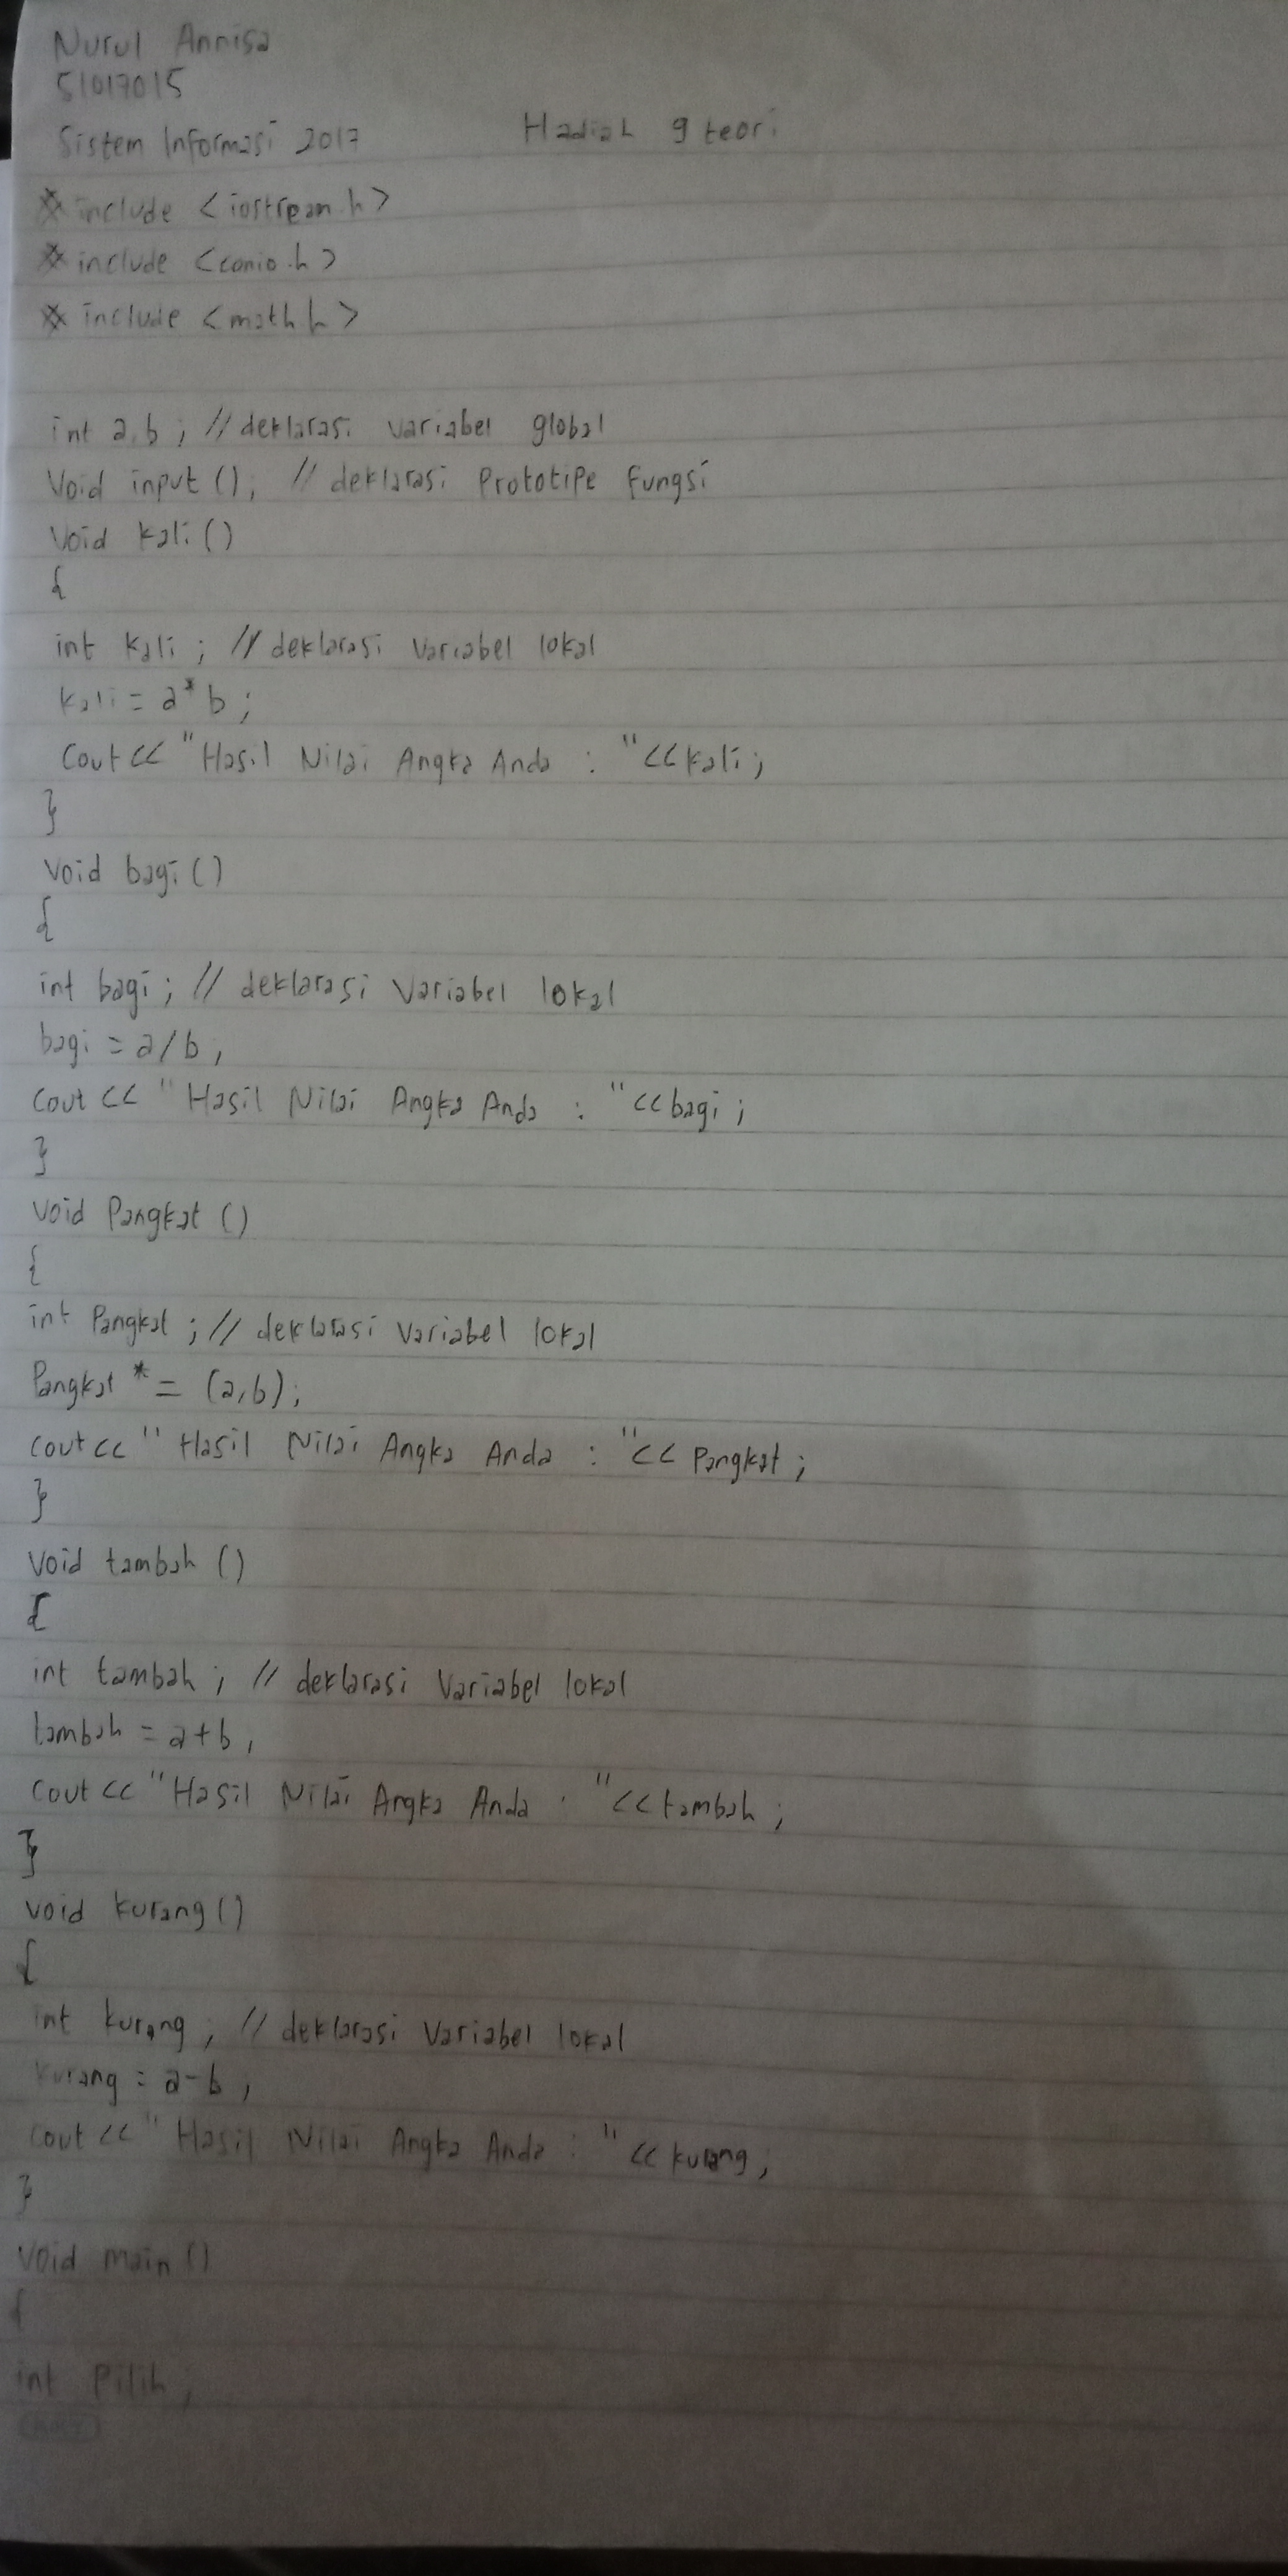 Nurul Annisa
51017015
Sistem Informasi 2017
Hadiah 9 teori
# include <iostream.h>
# include <conio.h>
# include <math.h>
int a,b ; // deklarasi variabel global
Void input (); // deklarasi Prototipe Fungsi
Void kali ()
{
int kali ; // deklarasi Variabel lokal
kali = a*b ;
Cout << "Hasil Nilai Angka Anda : "<<kali ;
}
Void bagi ()
{
int bagi ; // deklarasi Variabel lokal
bagi = a/b ,
Cout << "Hasil Nilai Angka Anda : "<<bagi ;
}
Void Pangkat ()
{
int Pangkat ; // deklarasi Variabel lokal
Pangkat *= (a,b) ;
cout << " Hasil Nilai Angka Anda : "<< Pangkat ;
}
Void tambah ()
{
int tambah ; // deklarasi Variabel lokal
tambah = a+b ,
Cout << "Hasil Nilai Angka Anda : "<<tambah ;
}
Void kurang ()
{
int kurang , // deklarasi Variabel lokal
kurang = a-b ,
Cout << " Hasil Nilai Angka Anda : "<< kurang ,
}
Void main ()
{
int Pilih ;